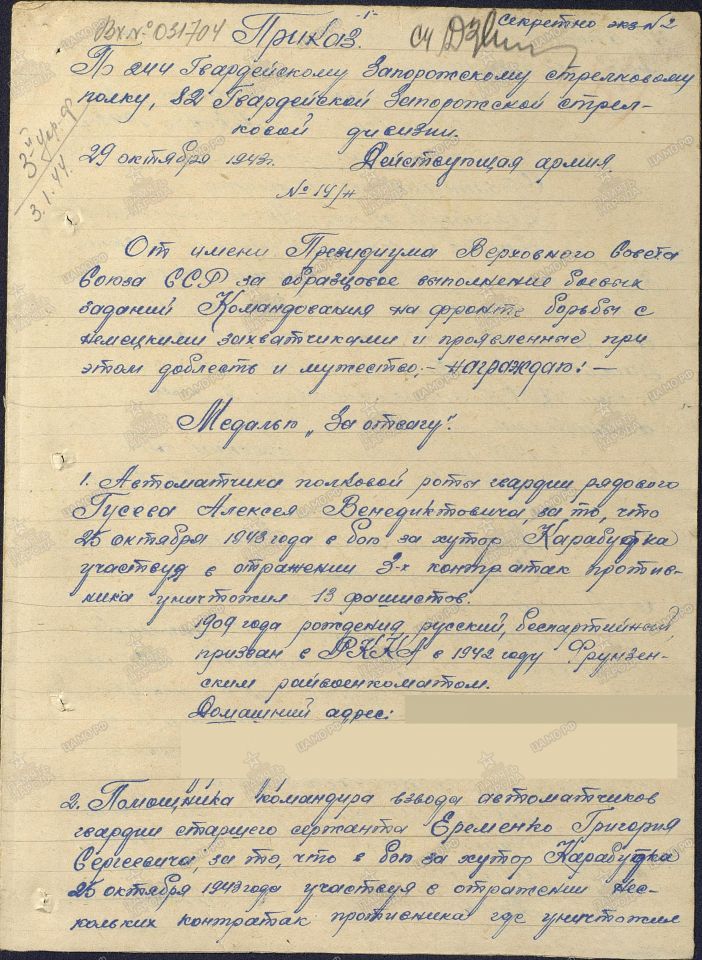 Вх. № 031704
-1-
Секретно экз. № 2
Приказ.
По 244 Гвардейскому Запорожскому стрелковому
полку, 82 Гвардейской Запорожской стрел-
ковой дивизии.
29 октября 1943 г. Действующая армия.
№ 14/н
3.1.44.
От имени Президиума Верховного Совета
Союза ССР за образцовое выполнение боевых
заданий Командования на фронте борьбы с
немецкими захватчиками и проявленные при
этом доблесть и мужество,- награждаю: -
Медалью „За отвагу".
1. Автоматчика полковой роты гвардии рядового
Гусева Алексея Венедиктовича, за то, что
25 октября 1943 года в бою за хутор Карабутка
участвуя в отражении 3-х контратак против-
ника уничтожил 13 фашистов.
1909 года рождения, русский, беспартийный,
призван в РККА в 1942 году Фрунзен-
ским райвоенкоматом.
Домашний адрес:
2. Помощника командира взвода автоматчиков
гвардии старшего сержанта Еременко Григория
Сергеевича, за то, что в бою за хутор Карабутка
25 октября 1943 года участвуя в отражении нес-
кольких контратак противника где уничтожил